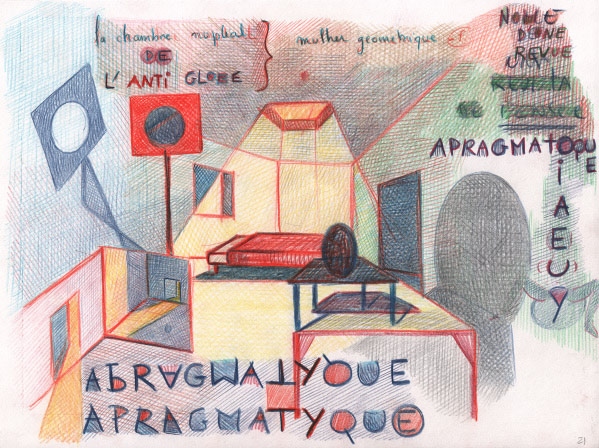 la chambre nuptiale
DE
L'ANTI GLOBE
muther géométrique
NOBLE
DONE
REVUE
APRAGMATOQUE
O
I
A
E
U
Y
APRAGMATYQUE
APRAGMATYQUE
21